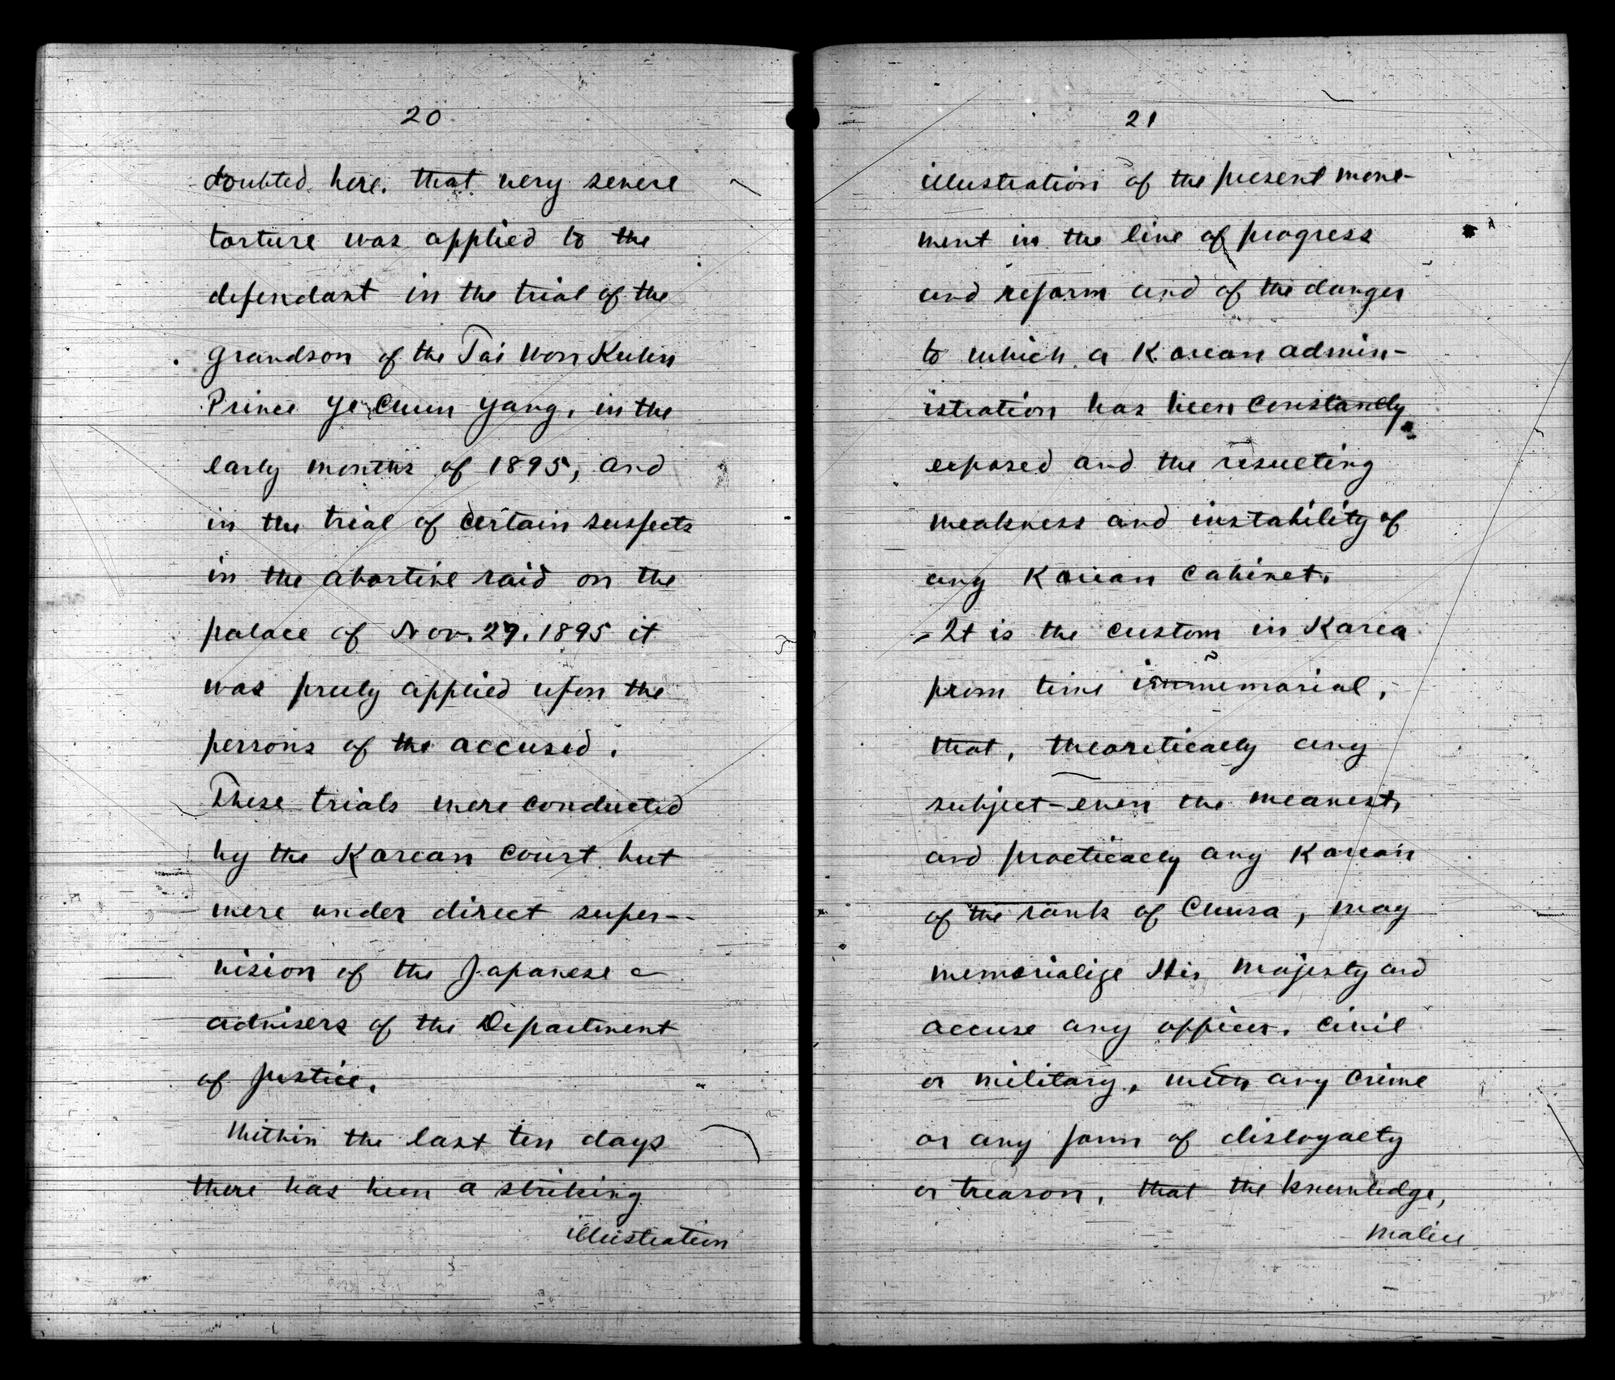 20
doubted here, that very severe
torture was applied to the
defendant in the trial of the
grandson of the Tai Won Kuhn
Prince Ye Chun Yang, in the
early months of 1895, and
in the trial of certain suspects
in the abortive raid on the
palace of Nov. 27, 1895 it
was freely applied upon the
persons of the accused.
These trials were conducted
by the Korean Court but
were under direct super-
vision of the Japanese
advisers of the Department
of Justice.
Within the last ten days
there has been a striking
illustration
21
illustration of the present move-
ment in the line of progress
and reform and of the danger
to which a Korean admin-
istration has been constantly
exposed and the resulting
weakness and instability of
any Korean Cabinet.
It is the custom in Korea
from time immemorial,
that, theoretically any
subject-even the meanest,
and practically any Korean
of the rank of Chusa, may
memorialize His Majesty and
accuse any officer, civil
or military, with any crime
or any form of disloyalty
or treason, that the knowledge,
malice